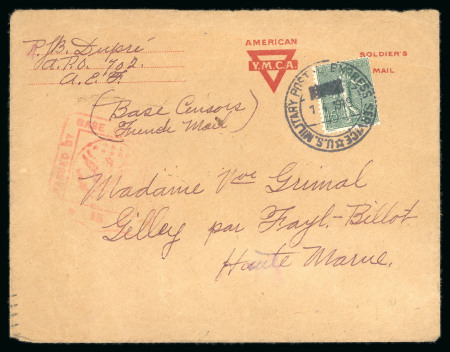 R. B. Dupré
A.P.O. 702.
A.E.F.
AMERICAN
Y.M.C.A
SOLDIER'S
MAIL
U.S. MILITARY POST EXPRESS SERVICE
(Base Censors
French Mail)
PASSED BY
BASE
Madame Vve Grimal
Gilley par Fayl-Billot
Haute Marne.